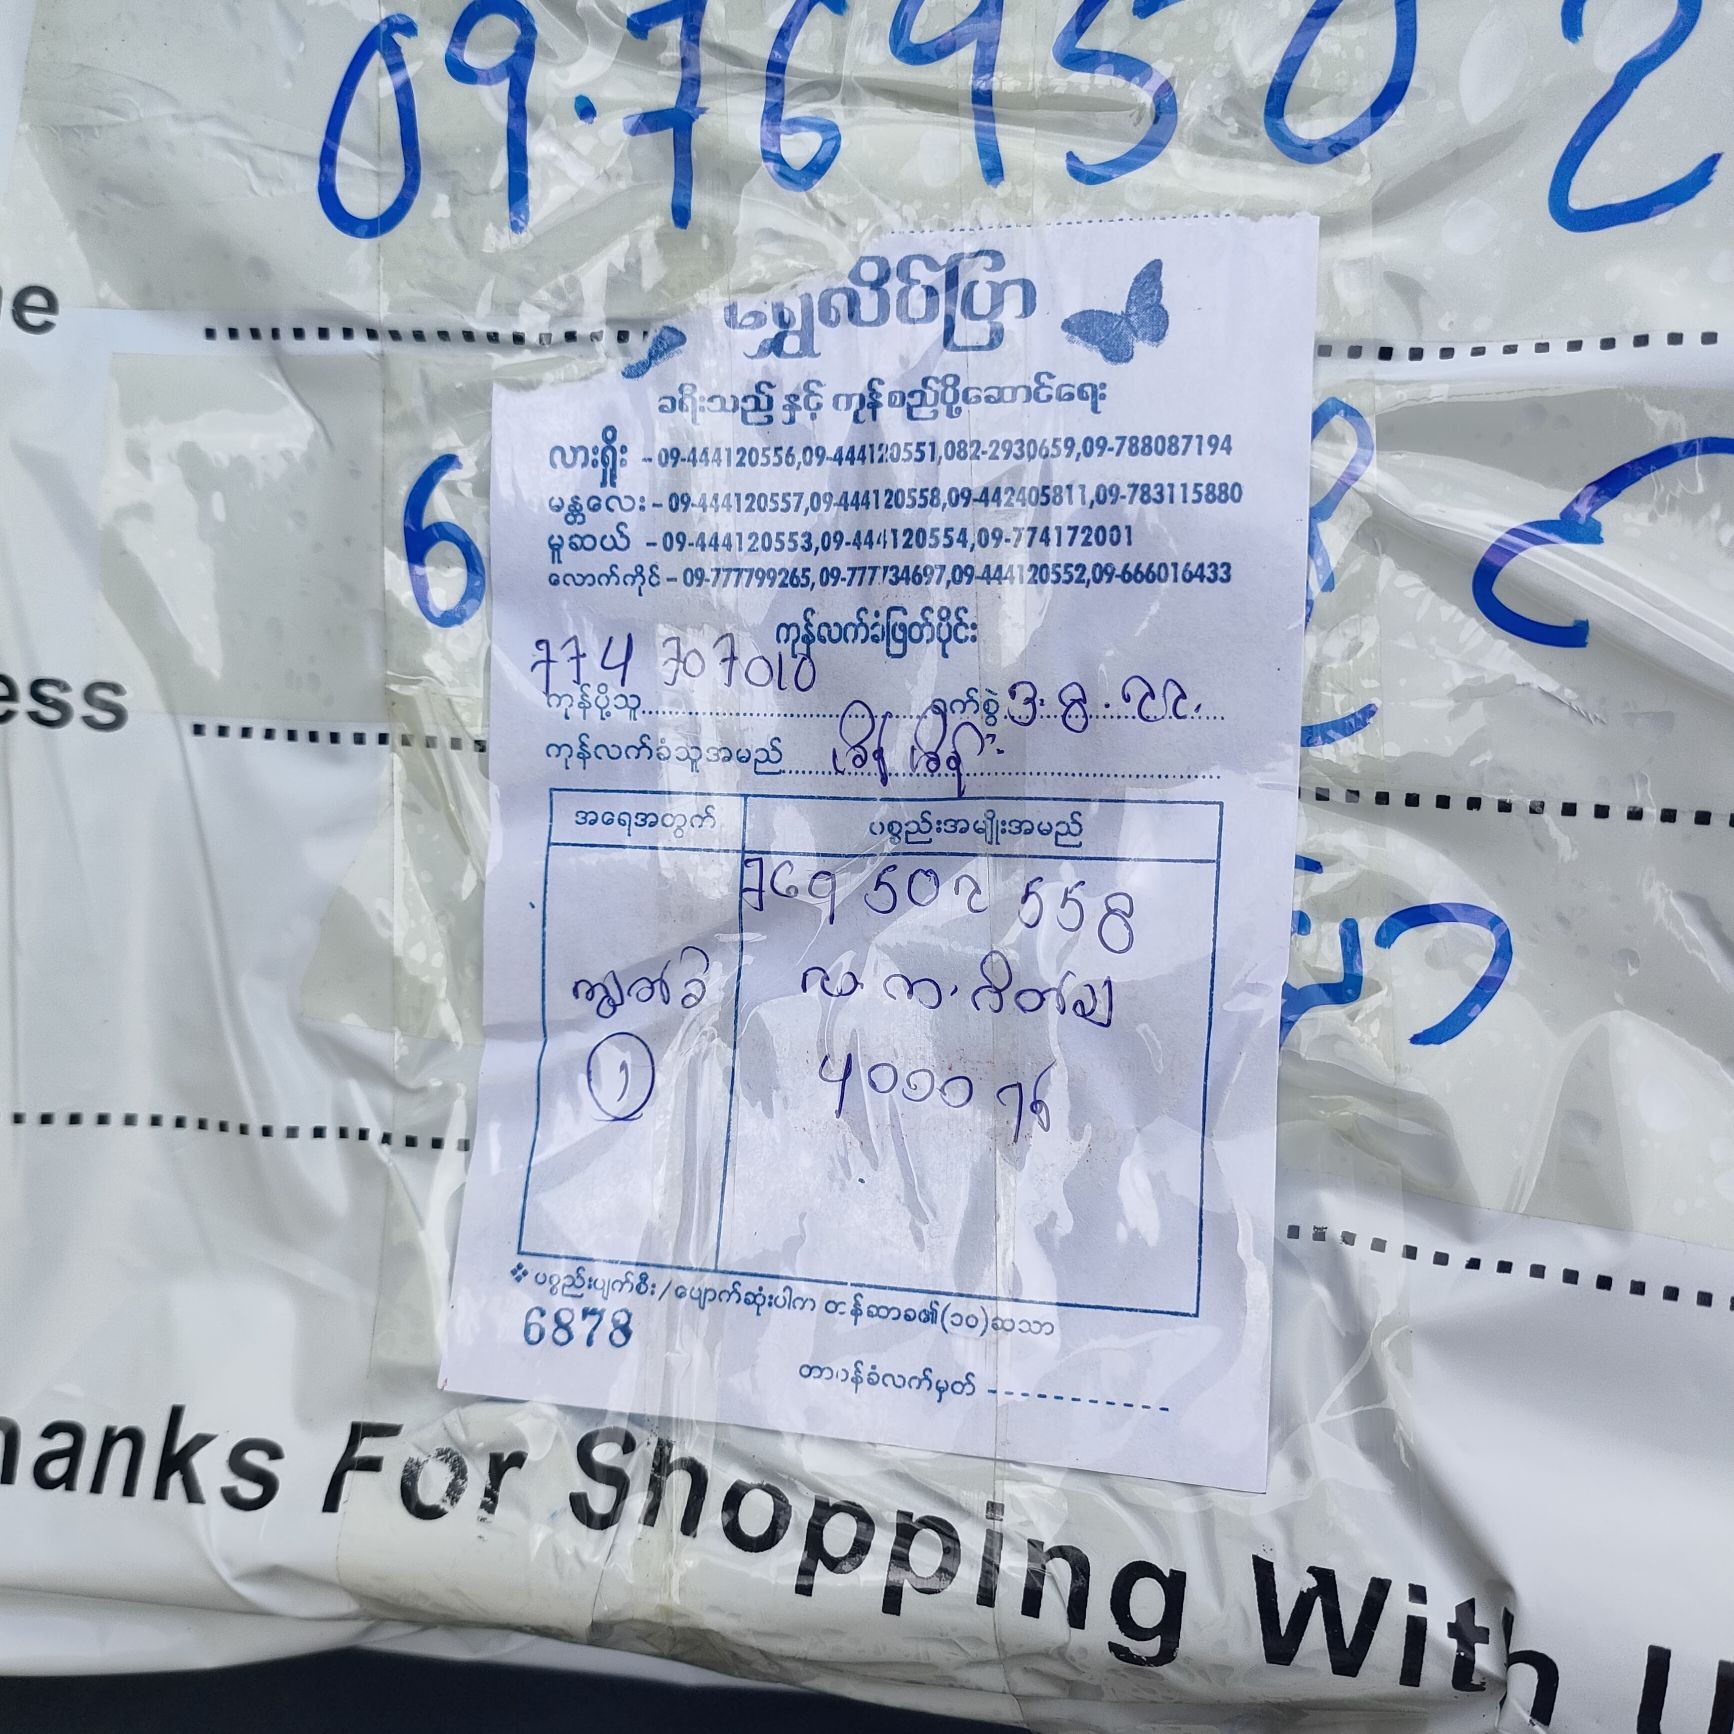 09.769502
ရွှေလိပ်ပြာ
ခရီးသည် နှင့် ကုန်စည်ပို့ဆောင်ရေး
လားရှိုး - 09-444120556,09-444120551,082-2930659,09-788087194
မန္တလေး - 09-444120557,09-444120558,09-442405811,09-783115880
မူဆယ် - 09-444120553,09-444120554,09-774172001
လောက်ကိုင် - 09-777799265, 09-777734697,09-444120552,09-666016433
ကုန်လက်ခံဖြတ်ပိုင်း
774 707010
ကုန်ပို့သူ ရက်စွဲ 3.8.22.
ess
ကုန်လက်ခံသူအမည်
အရေအတွက် ပစ္စည်းအမျိုးအမည်
769 502 558
ကျွတ်ခဲ လ.က.ပိတ်ချ
1 4000 ကျပ်
❖ ပစ္စည်းပျက်စီး/ပျောက်ဆုံးပါက တန်ဆာခ၏(၁၀)ဆသာ
6878
တာဝန်ခံလက်မှတ်
hanks For Shopping With U